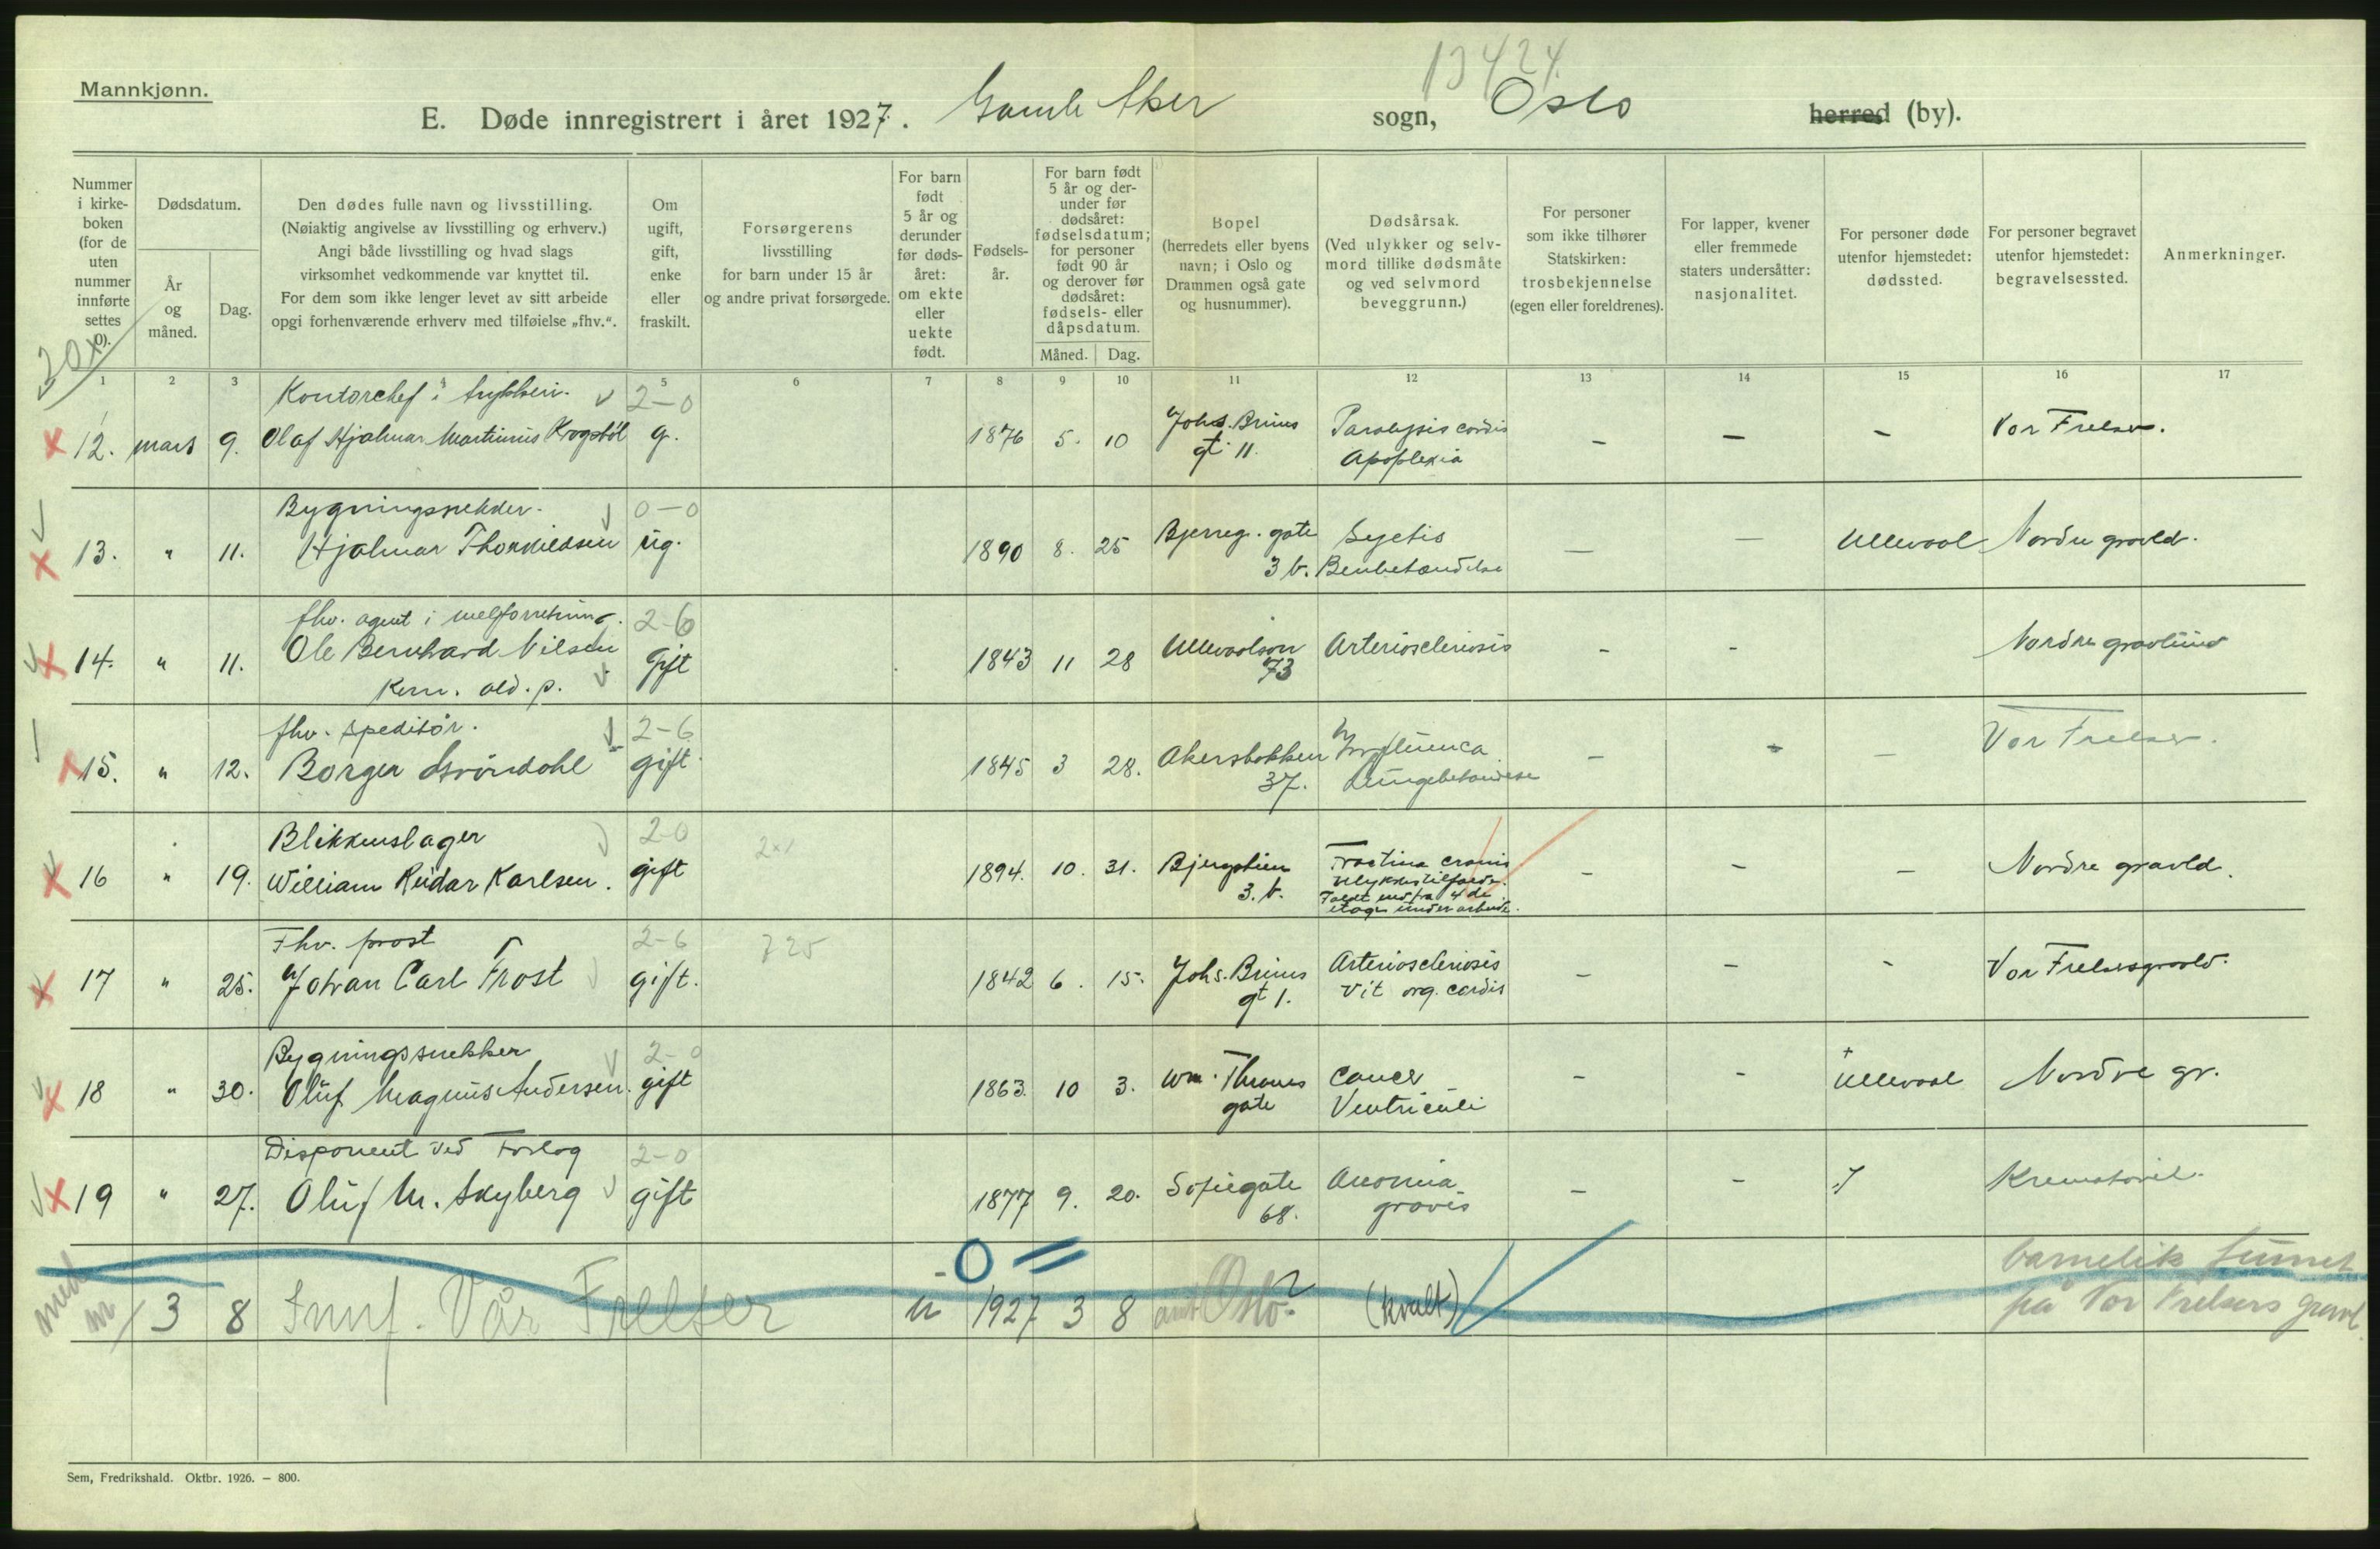 13424
Mannkjønn.
E. Døde innregistrert i året 1927. Gamle Aker sogn, Oslo herred (by).
Nummer i kirkeboken (for de uten nummer innførte settes 0).
Dødsdatum.
År og måned.
Dag.
Den dødes fulle navn og livsstilling.
(Nøiaktig angivelse av livsstilling og erhverv.)
Angi både livsstilling og hvad slags
virksomhet vedkommende var knyttet til.
For dem som ikke lenger levet av sitt arbeide
opgi forhenværende erhverv med tilføielse „fhv.“.
Om ugift, gift, enke eller fraskilt.
Forsørgerens livsstilling
for barn under 15 år
og andre privat forsørgede.
For barn født 5 år og derunder før dødsåret: om ekte eller uekte født.
Fødselsår.
For barn født 5 år og derunder før dødsåret: fødselsdatum; for personer født 90 år og derover før dødsåret: fødsels- eller dåpsdatum.
Måned. Dag.
Bopel
(herredets eller byens navn; i Oslo og Drammen også gate og husnummer).
Dødsårsak.
(Ved ulykker og selvmord tillike dødsmåte og ved selvmord beveggrunn.)
For personer som ikke tilhører Statskirken: trosbekjennelse (egen eller foreldrenes).
For lapper, kvener eller fremmede staters undersåtter: nasjonalitet.
For personer døde utenfor hjemstedet: dødssted.
For personer begravet utenfor hjemstedet: begravelsessted.
Anmerkninger.
1 2 3 4 5 6 7 8 9 10 11 12 13 14 15 16 17
Kontorchef i trykkeri. 2-0
12. mars 9. Olaf Hjalmar Martinius Krogsböl g. 1876 5. 10 Johs. Bruns gt. 11. Paralysis cordis Apoplexia - - - Vor Frelser.
Bygningssnekker. 0-0
13. " 11. Hjalmar Thorkildsen ug. 1890 8. 25 Bjerreg. gate 3 b. Benbetændelse — — Ullevaal Nordre gravld.
fhv. agent i melforretning. 2-6
14. " 11. Ole Bernhard Nilsen gift 1843 11 28 73 Arteriosclerosis - - Nordre gravlund
ald. p.
fhv. speditör. 2-6
15. " 12. Borger gift 1845 3 28. Akersbakken 37. Influenca Lungebetændelse - - - Vor Frelser.
Blikkenslager 2-0
16 " 19. William Reidar Karlsen. gift 1894. 10. 31. Bjergstien 3. b. Fractura cranii Ulykkestilfælde. Faldt ned fra 4de etage under arbeide. - - - Nordre gravld.
Fhv. prost 2-6 725
17 " 25. Johan Carl Frost gift. 1842 6. 15. Johs. Bruns gt 1. Arteriosclerosis Vit. org. cordis - - - Vor Frelsersgravld.
Bygningssnekker 2-0
18 " 30. Oluf Magnus Andersen. gift 1863. 10 3. Wm. Thranes gate Cancer Ventriculi - - + Ullevaal Nordre gr.
Disponent ved Forlag 2-0
19 " 27. Oluf M. Skyberg gift 1877 9. 20. Sofiegate 68. Anæmia gravis - - Krematoriet.
0 =
med nr 3 8 Innf. Vår Frelser u 1927 3 8 Oslo? (kvalt) barnelik funnet på Vor Frelsers gravl.
Sem, Fredrikshald. Oktbr. 1926. — 800.